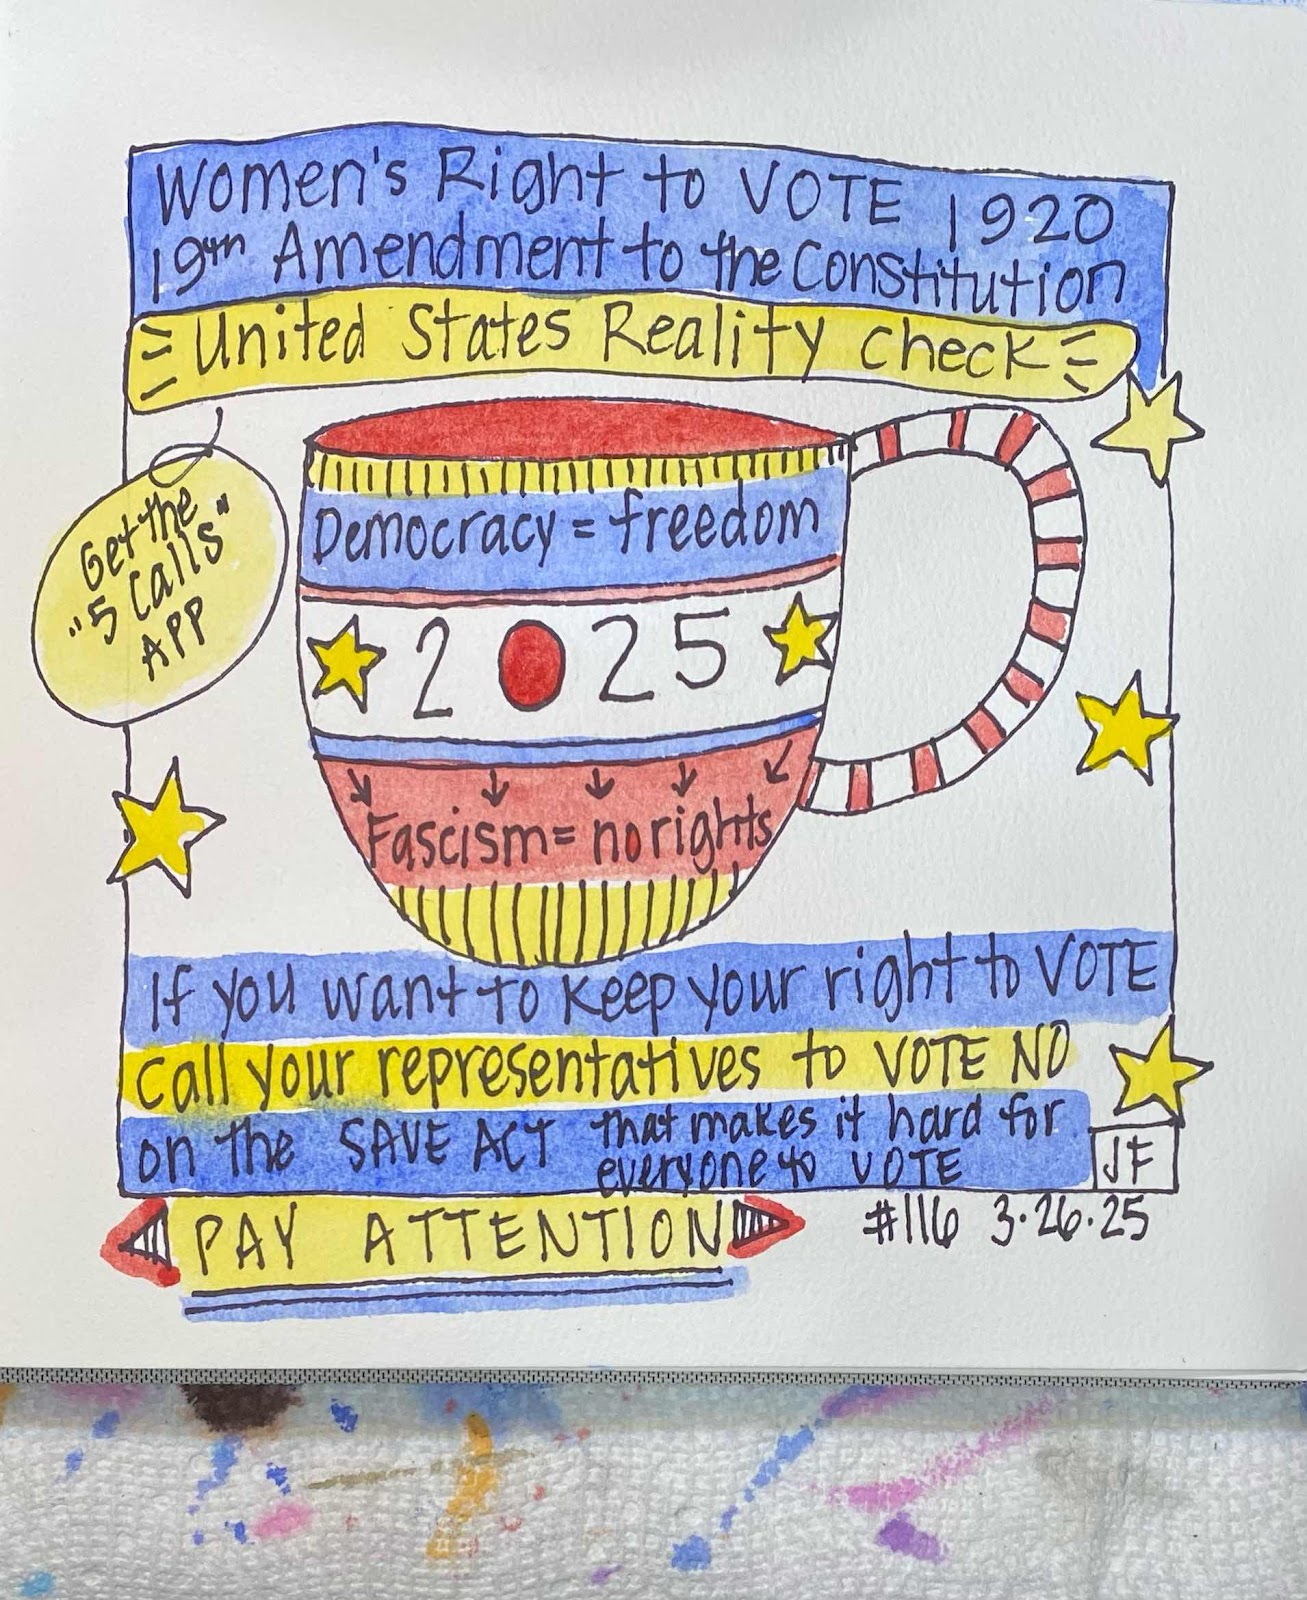 Women's Right to VOTE 1920
19th Amendment to the Constitution
United States Reality Check
Get the
"5 Calls"
APP
Democracy = freedom
2025
Fascism = no rights
If you want to keep your right to VOTE
Call your representatives to VOTE NO
on the SAVE ACT that makes it hard for
everyone to VOTE
JF
PAY ATTENTION
#116 3.26.25